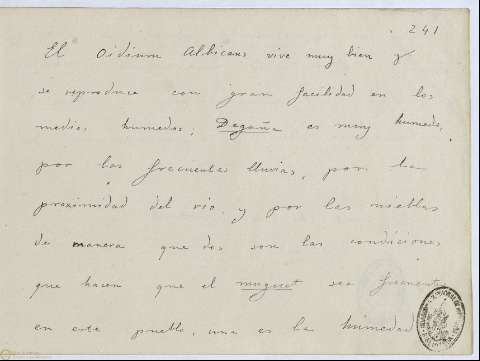 241
El Oidium Albicans vive muy bien y
se reproduce con gran facilidad en los
medios humedos; Degaña es muy humedo,
por las frecuentes lluvias, por la
proximidad del rio, y por las nieblas
de manera que dos son las condiciones
que hacen que el muguet sea frecuente
en este pueblo, una es la humedad